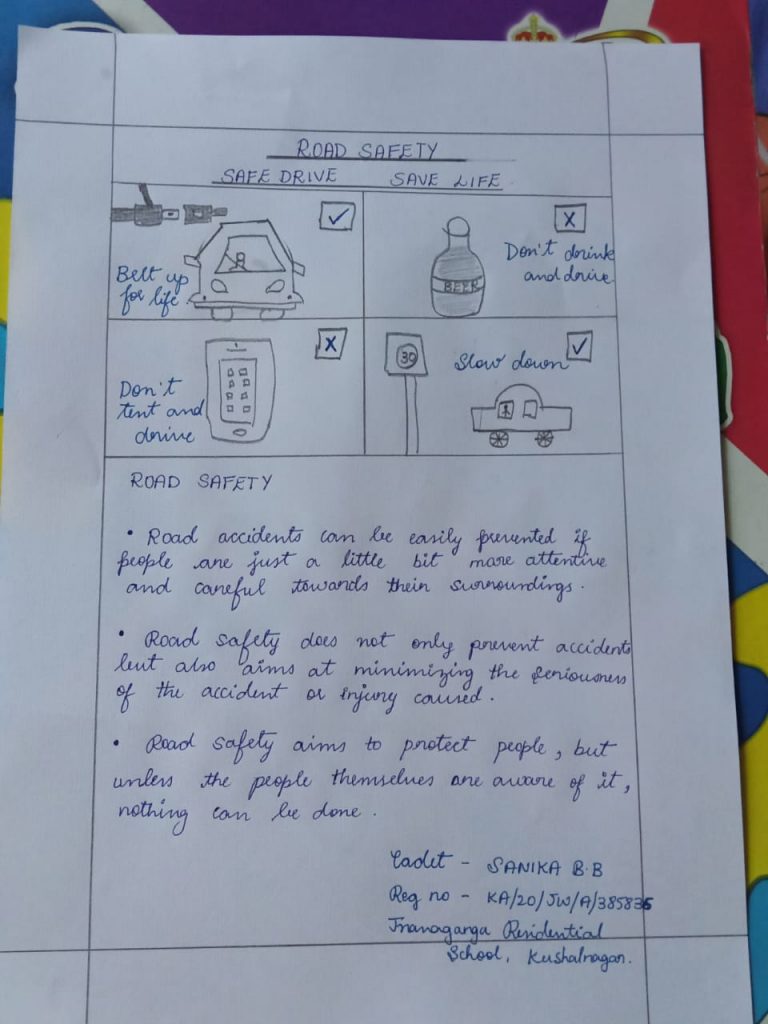 ROAD SAFETY
SAFE DRIVE SAVE LIFE
Belt up
for life
BEER
Don't drink
and drive
Don't
text and
drive
30
Slow down
ROAD SAFETY
• Road accidents can be easily prevented if
people are just a little bit more attentive
and careful towards their surroundings.
• Road safety does not only prevent accidents
but also aims at minimizing the seriousness
of the accident or injury caused.
• Road safety aims to protect people, but
unless the people themselves are aware of it,
nothing can be done.
Cadet - SANIKA B.B
Reg no - KA/20/JW/A/385836
Jnanaganga Residential
School, Kushalnagar.